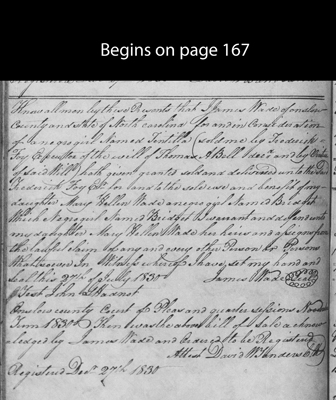 Begins on page 167
Know all men by these Presents that I James Wade of onslow
County and state of North Carolina for and in Consideration
of a negro girl Named Fertilla (sold me by Frederick
Foy Executor of the will of Thomas A Bell decd and by
of said Will) hath given granted sold and delivered unto the said
Frederick Foy Ex for land to the sole use and benefit of my
daughter Mary Hellen Wade a negro girl Named Bridget
Which negro girl Named Bridget I Warrant and defend unto
my daughter Mary Hellen Wade her heirs and assigns from
the lawful claim of any and every other Person or Persons
Whatsoever In Witness whereof I have set my hand and
seal this 27th of July 1830 James Wade Seal
Test John
Onslow county Court of Pleas and quarter sessions Novr
Term 1830 Then was the above bill of Sale acknow
ledged by James Wade and ordered to be Registered
Attest David W Sanders Clk
Registered Decr 27th 1830